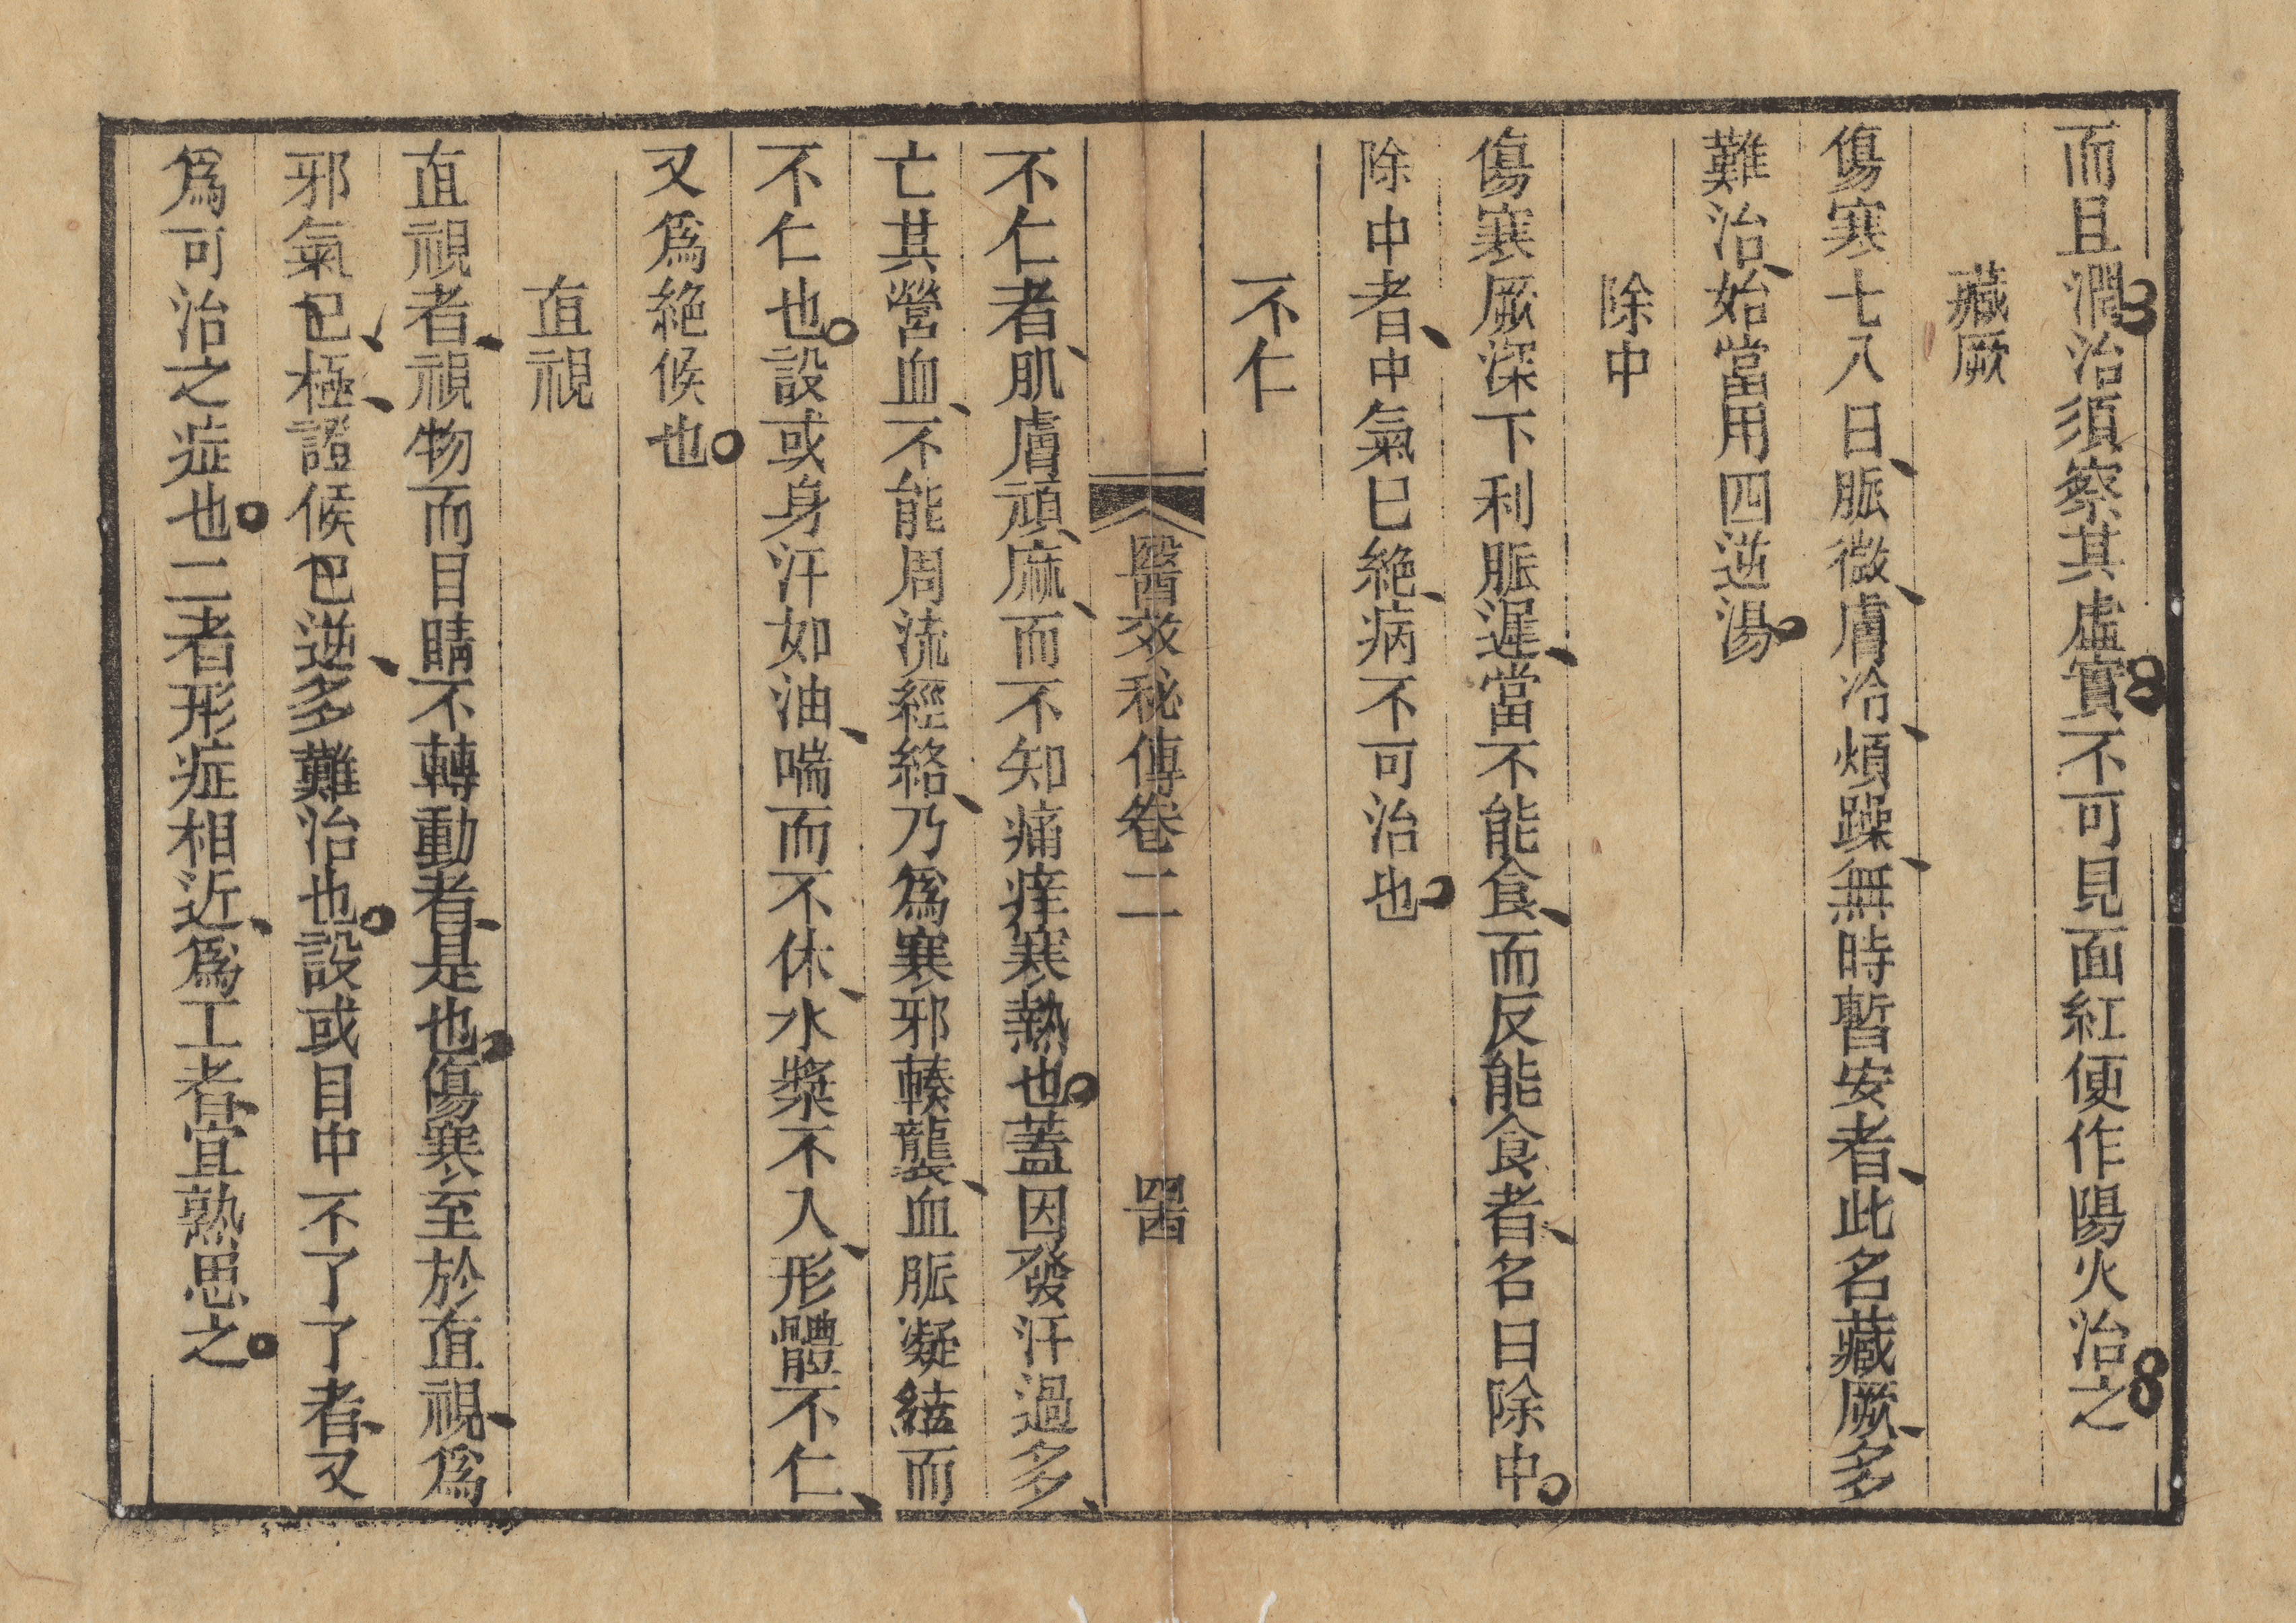 而且濶治須察其虛實不可見面紅便作陽火治之
藏厥
傷寒七八日、脈微、膚冷、煩躁、無時暫安者、此名藏厥、多
難治、始當用四逆湯。
除中
傷寒厥深下利脈遲、當不能食、而反能食者、名曰除中。
除中者、中氣已絶、病不可治也。
不仁
醫效秘傳卷二 罯
不仁者、肌膚頑、麻、而不知痛痒寒熱也。蓋因發汗過多、
亡其營血、不能周流經絡、乃爲寒邪輳襲、血脈凝結而
不仁也。設或身汗如油、喘而不休、水漿不入、形體不仁、
又爲絶候也。
直視
直視者、視物而目睛不轉動者、是也。傷寒至於直視、爲
邪氣已、極、證候已逆、多難治也。設或目中不了了者、又
爲可治之症也。二者形症相近、爲工者、宜熟思之。